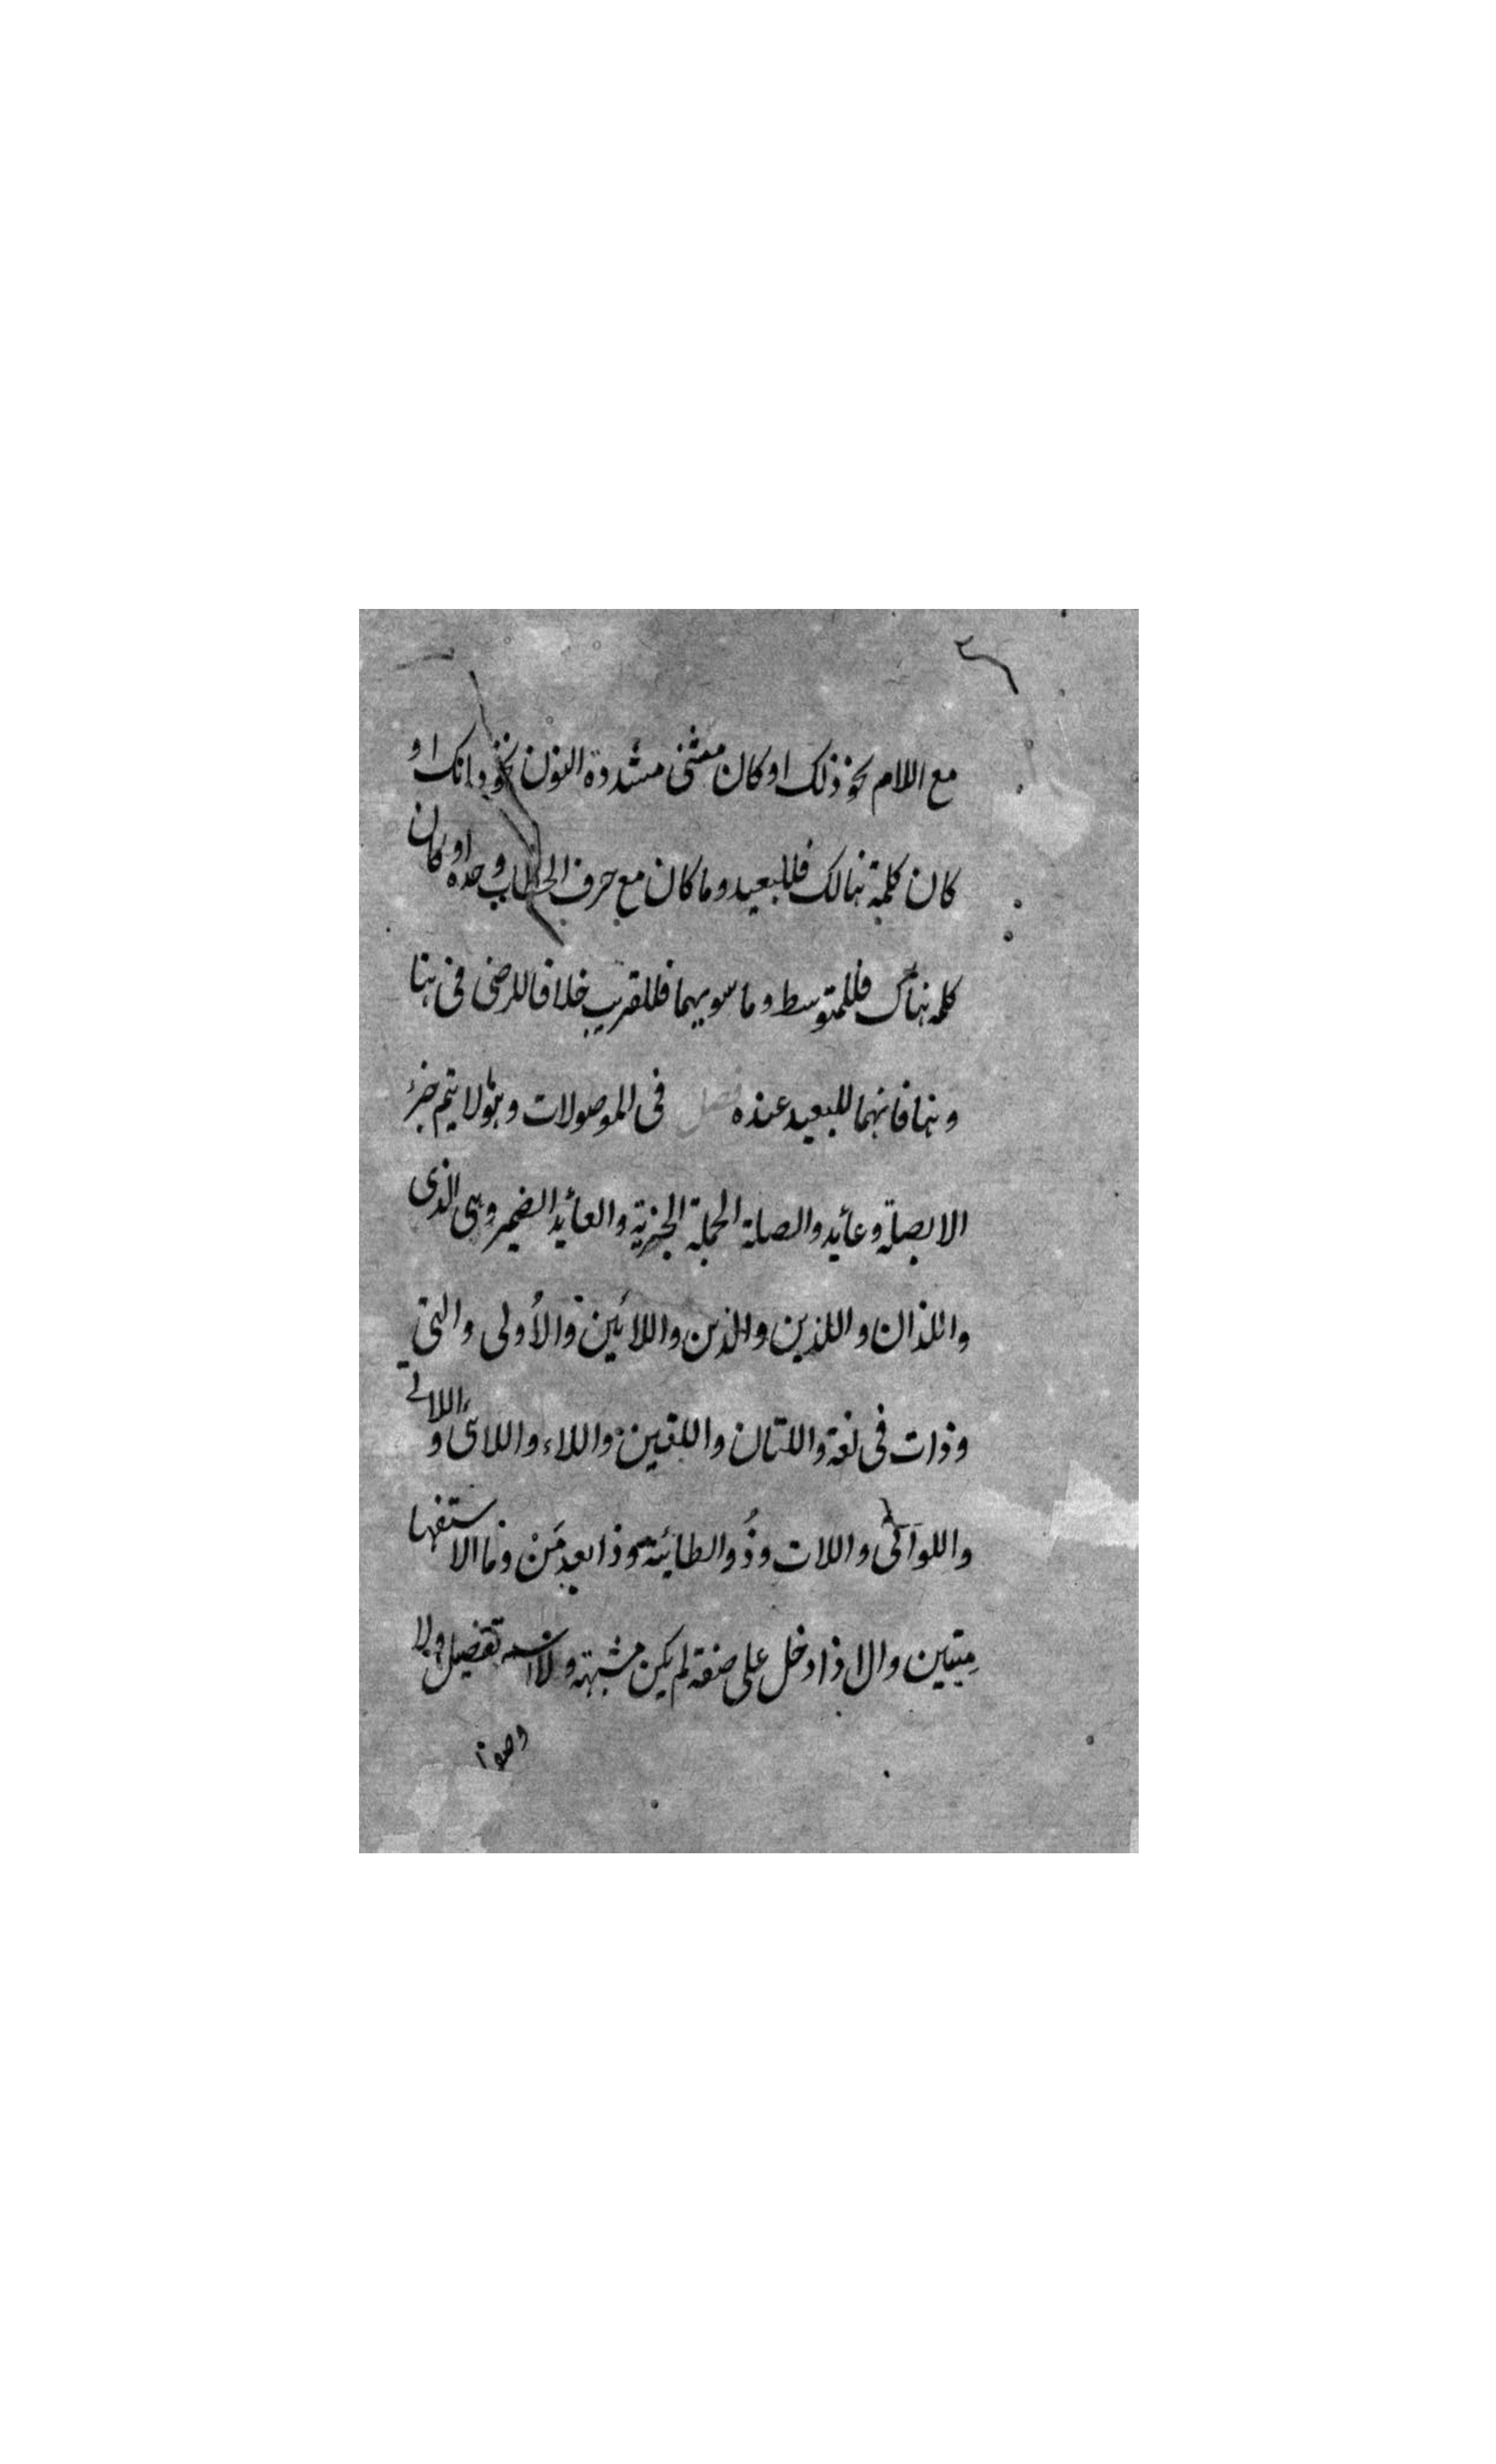 مع اللام نحو ذلك او كان مثنى مشددة النون نحو ذانك او
كان كلمة هنالك فللبعيد وما كان مع حرف الخطاب وحده او كان
كلمه هناك فللمتوسط وما سويهما فللقريب خلافا للرضى فى هنا
وهنا فانهما للبعيد عنده فصل فى الموصولات وهو ما لا يتم جزء
الا بصلة وعائد والصلة الجملة الخبرية والعائد الضمير وهى الذى
واللذان واللذين والذين واللائين والأولى والتي
وذات فى لغة واللتان واللتين واللاء واللائى واللاتي
واللواتى واللات وذُو الطائية وذا بعد مَنْ وما الاستفها
ميتين وال اذا دخل على صفة لم يكن مشبهة ولا تفضيل ولا